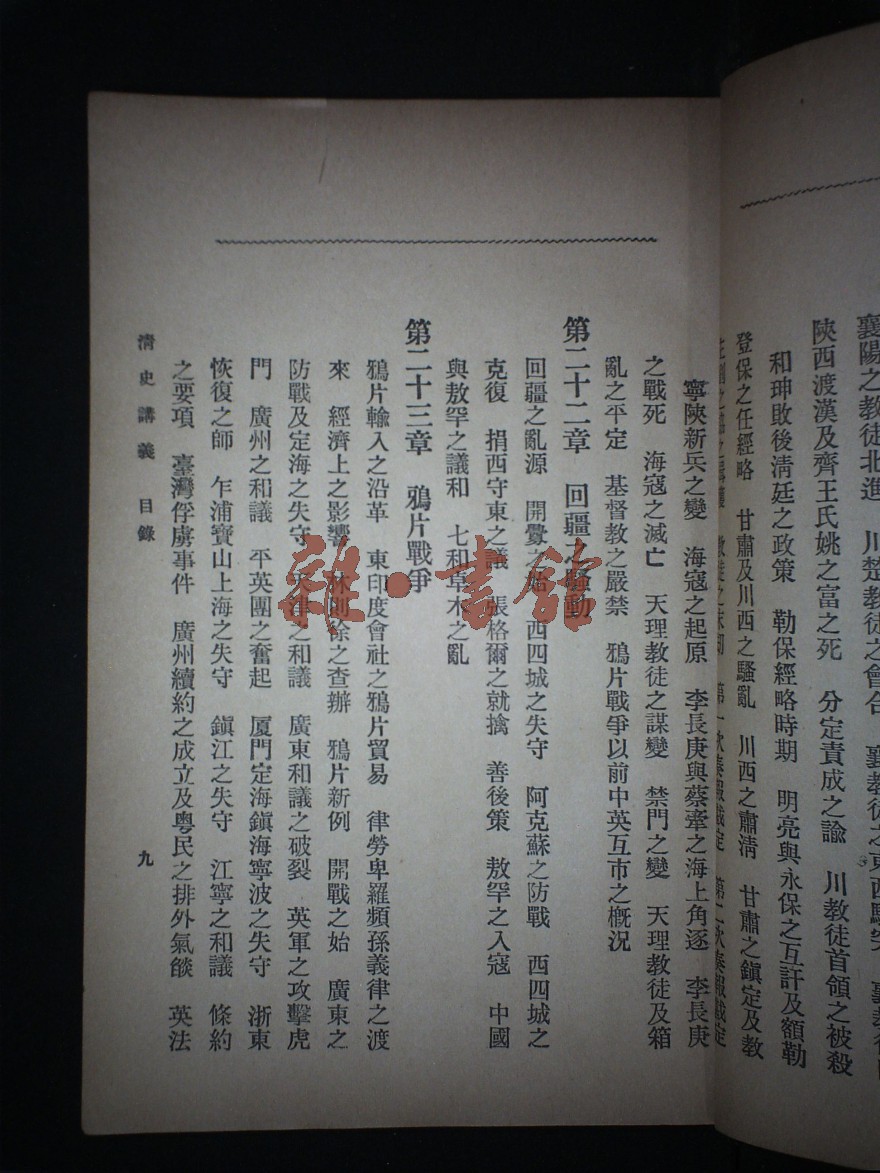 襄陽之教徒北進　川楚教徒之會合　襄教徒之東西騷突　襄教徒
陝西渡漢及齊王氏姚之富之死　分定責成之諭　川教徒首領之被殺
和珅敗後淸廷之政策　勒保經略時期　明亮與永保之互訐及額勒
登保之任經略　甘肅及川西之騷亂　川西之肅淸　甘肅之鎭定及教
第一次奏報戡定　第二次奏報戡定
寧陝新兵之變　海寇之起原　李長庚與蔡牽之海上角逐　李長庚
之戰死　海寇之滅亡　天理教徒之謀變　禁門之變　天理教徒及箱
亂之平定　基督教之嚴禁　鴉片戰爭以前中英互市之槪況
第二十二章　回疆之騷動
回疆之亂源　開釁之始　西四城之失守　阿克蘇之防戰　西四城之
克復　捐西守東之議　張格爾之就擒　善後策　敖罕之入寇　中國
與敖罕之議和　七和卓木之亂
第二十三章　鴉片戰爭
鴉片輸入之沿革　東印度會社之鴉片貿易　律勞卑羅頻孫義律之渡
來　經濟上之影響　林則徐之查辦　鴉片新例　開戰之始　廣東之
防戰及定海之失守　天津之和議　廣東和議之破裂　英軍之攻擊虎
門　廣州之和議　平英團之奮起　厦門定海鎭海寧波之失守　浙東
恢復之師　乍浦寶山上海之失守　鎭江之失守　江寧之和議　條約
之要項　臺灣俘虜事件　廣州續約之成立及粵民之排外氣燄　英法
淸史講義　目錄
九
雜·書館